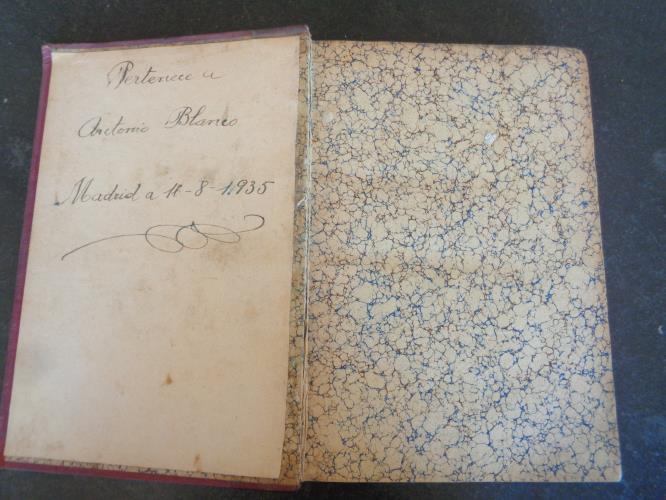 Pertenece a
Antonio Blanco
Madrid a 11-8-1.935